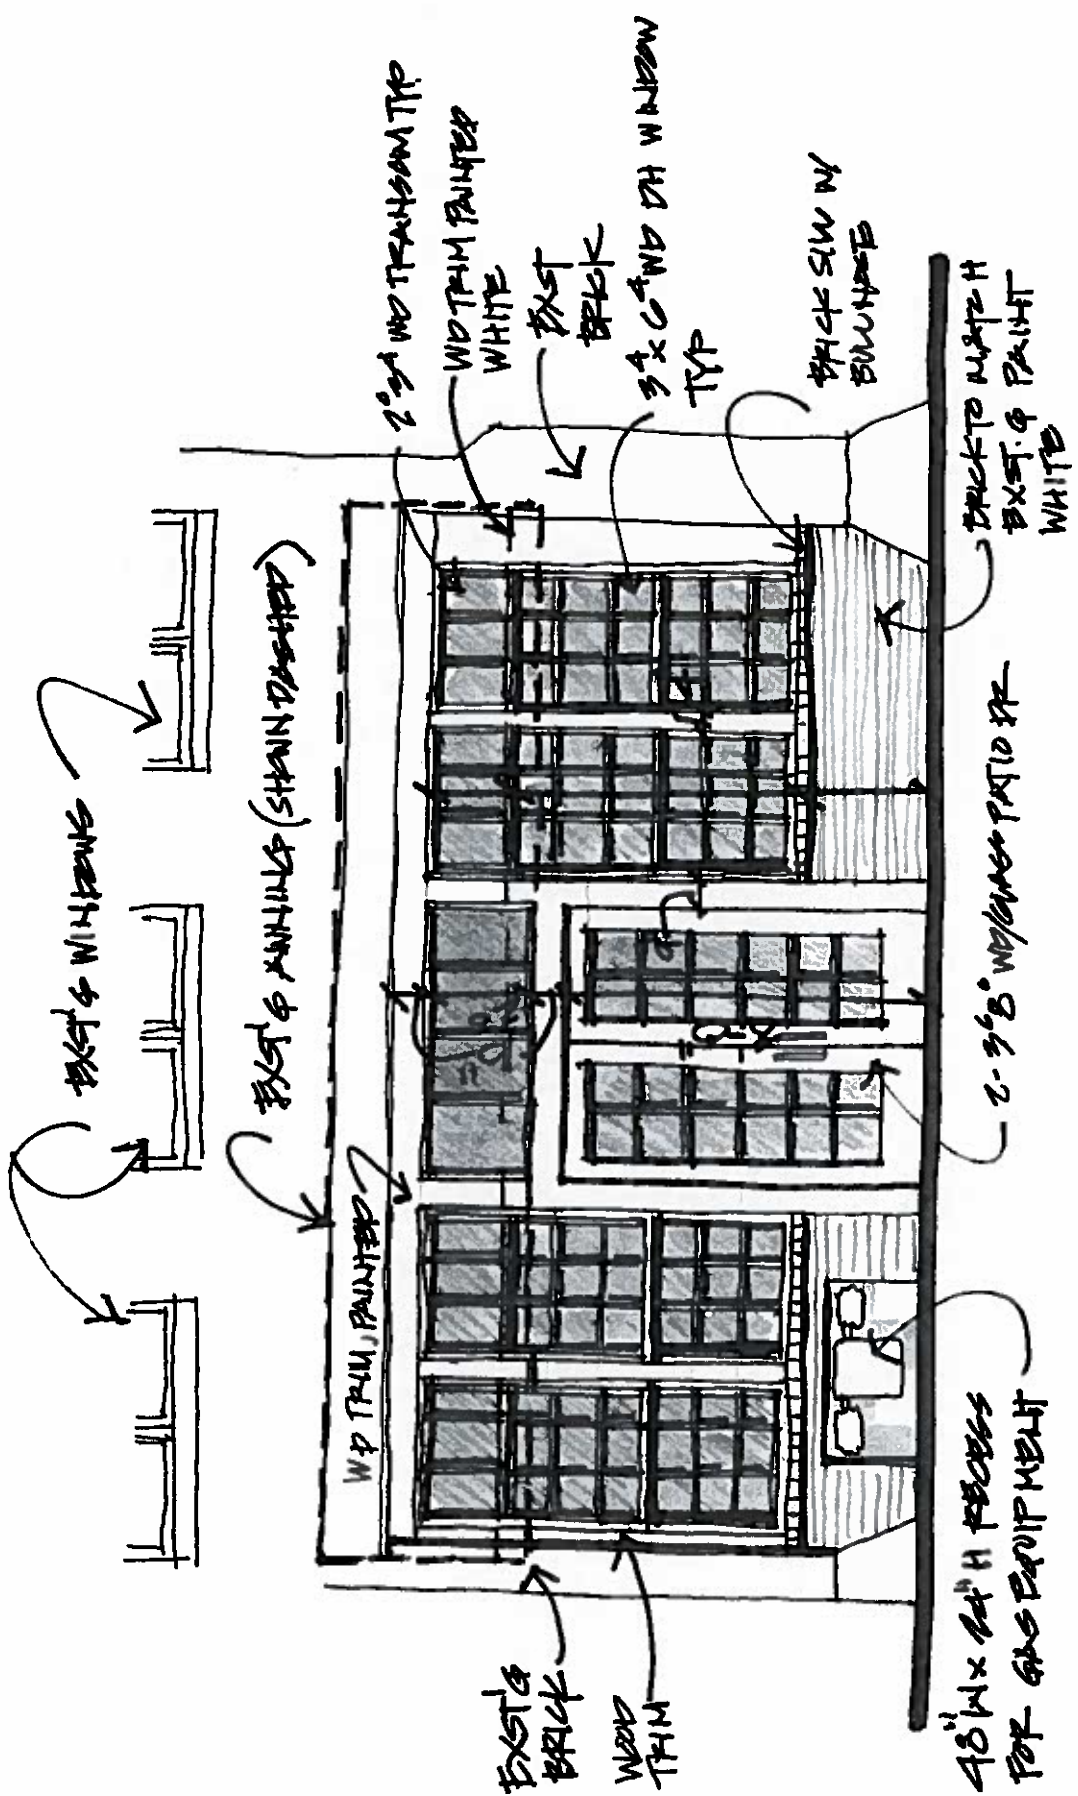 EXST'G WINDOWS
EXST'G AWNING (SHOWN DASHED)
WD TRIM, PAINTED
2⁰ 3⁴ WD TRANSOM TYP
WD TRIM PAINTED
WHITE
EXST
BRICK
3⁴ X 6⁴ WD DH WINDOW
TYP
BRICK SILL W/
BULLNOSE
BRICK TO MATCH
EXST. & PAINT
WHITE
2-3⁰ 8⁰ WD/GLASS PATIO DR
EXST'G
BRICK
WOOD
TRIM
48" W X 24" H RECESS
FOR GAS EQUIPMENT